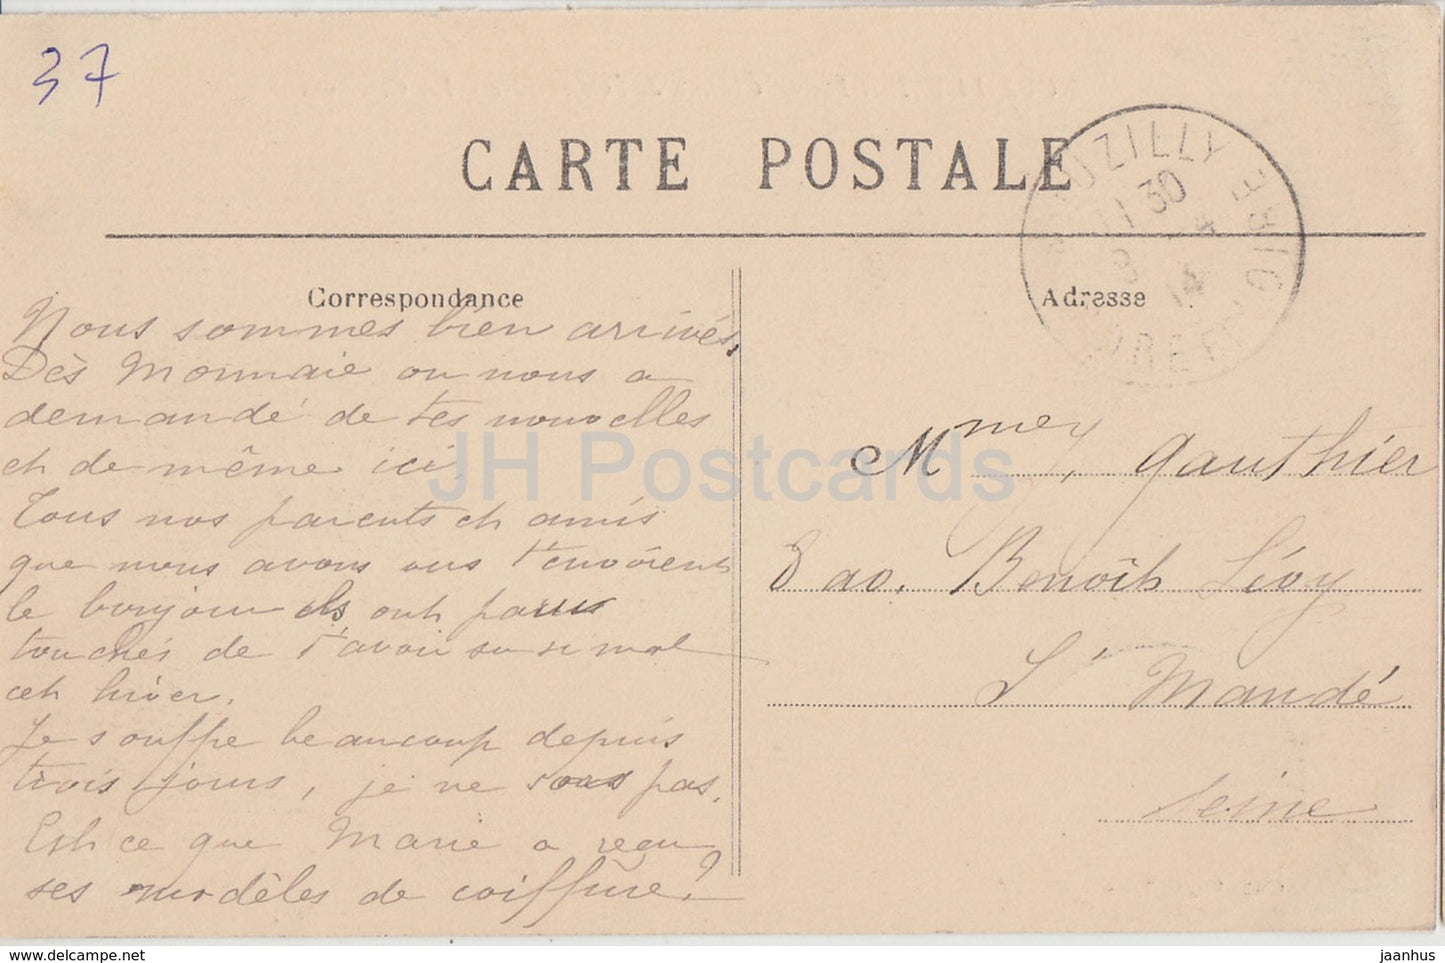 37
CARTE POSTALE
NOUZILLY
11 30
8 - 4
14
INDRE ET LOIRE
Correspondance
Nous sommes bien arrivés.
Dès Monnaie on nous a
demandé de tes nouvelles
et de même ici
Tous nos parents et amis
que nous avons vus t'envoient
le bonjour ils ont
touchés de t'avoir su si mal
cet hiver.
Je souffre beaucoup depuis
trois jours, je ne sors pas.
Est ce que Marie a reçu
ses modèles de coiffure?
Adresse
Mme Gauthier
8 av. Benoît Lévy
St Mandé
Seine
JH Postcards
jaanhus